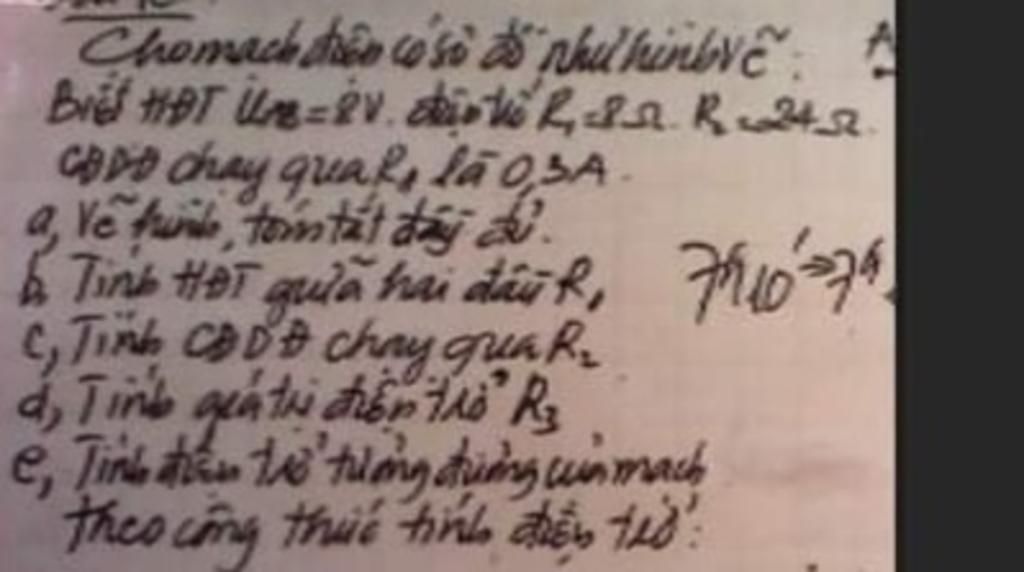 Cho mạch điện có sơ đồ như hình vẽ:
Biết HĐT UAB = 8V. điện trở R1 = 8Ω. R2 = 24Ω.
CĐDĐ chạy qua R1 là 0,3A.
a, Vẽ hình, tóm tắt đầy đủ.
b, Tính HĐT giữa hai đầu R1
c, Tính CĐDĐ chạy qua R2
d, Tính giá trị điện trở R3
e, Tính điện trở tương đương của mạch
theo công thức tính điện trở: